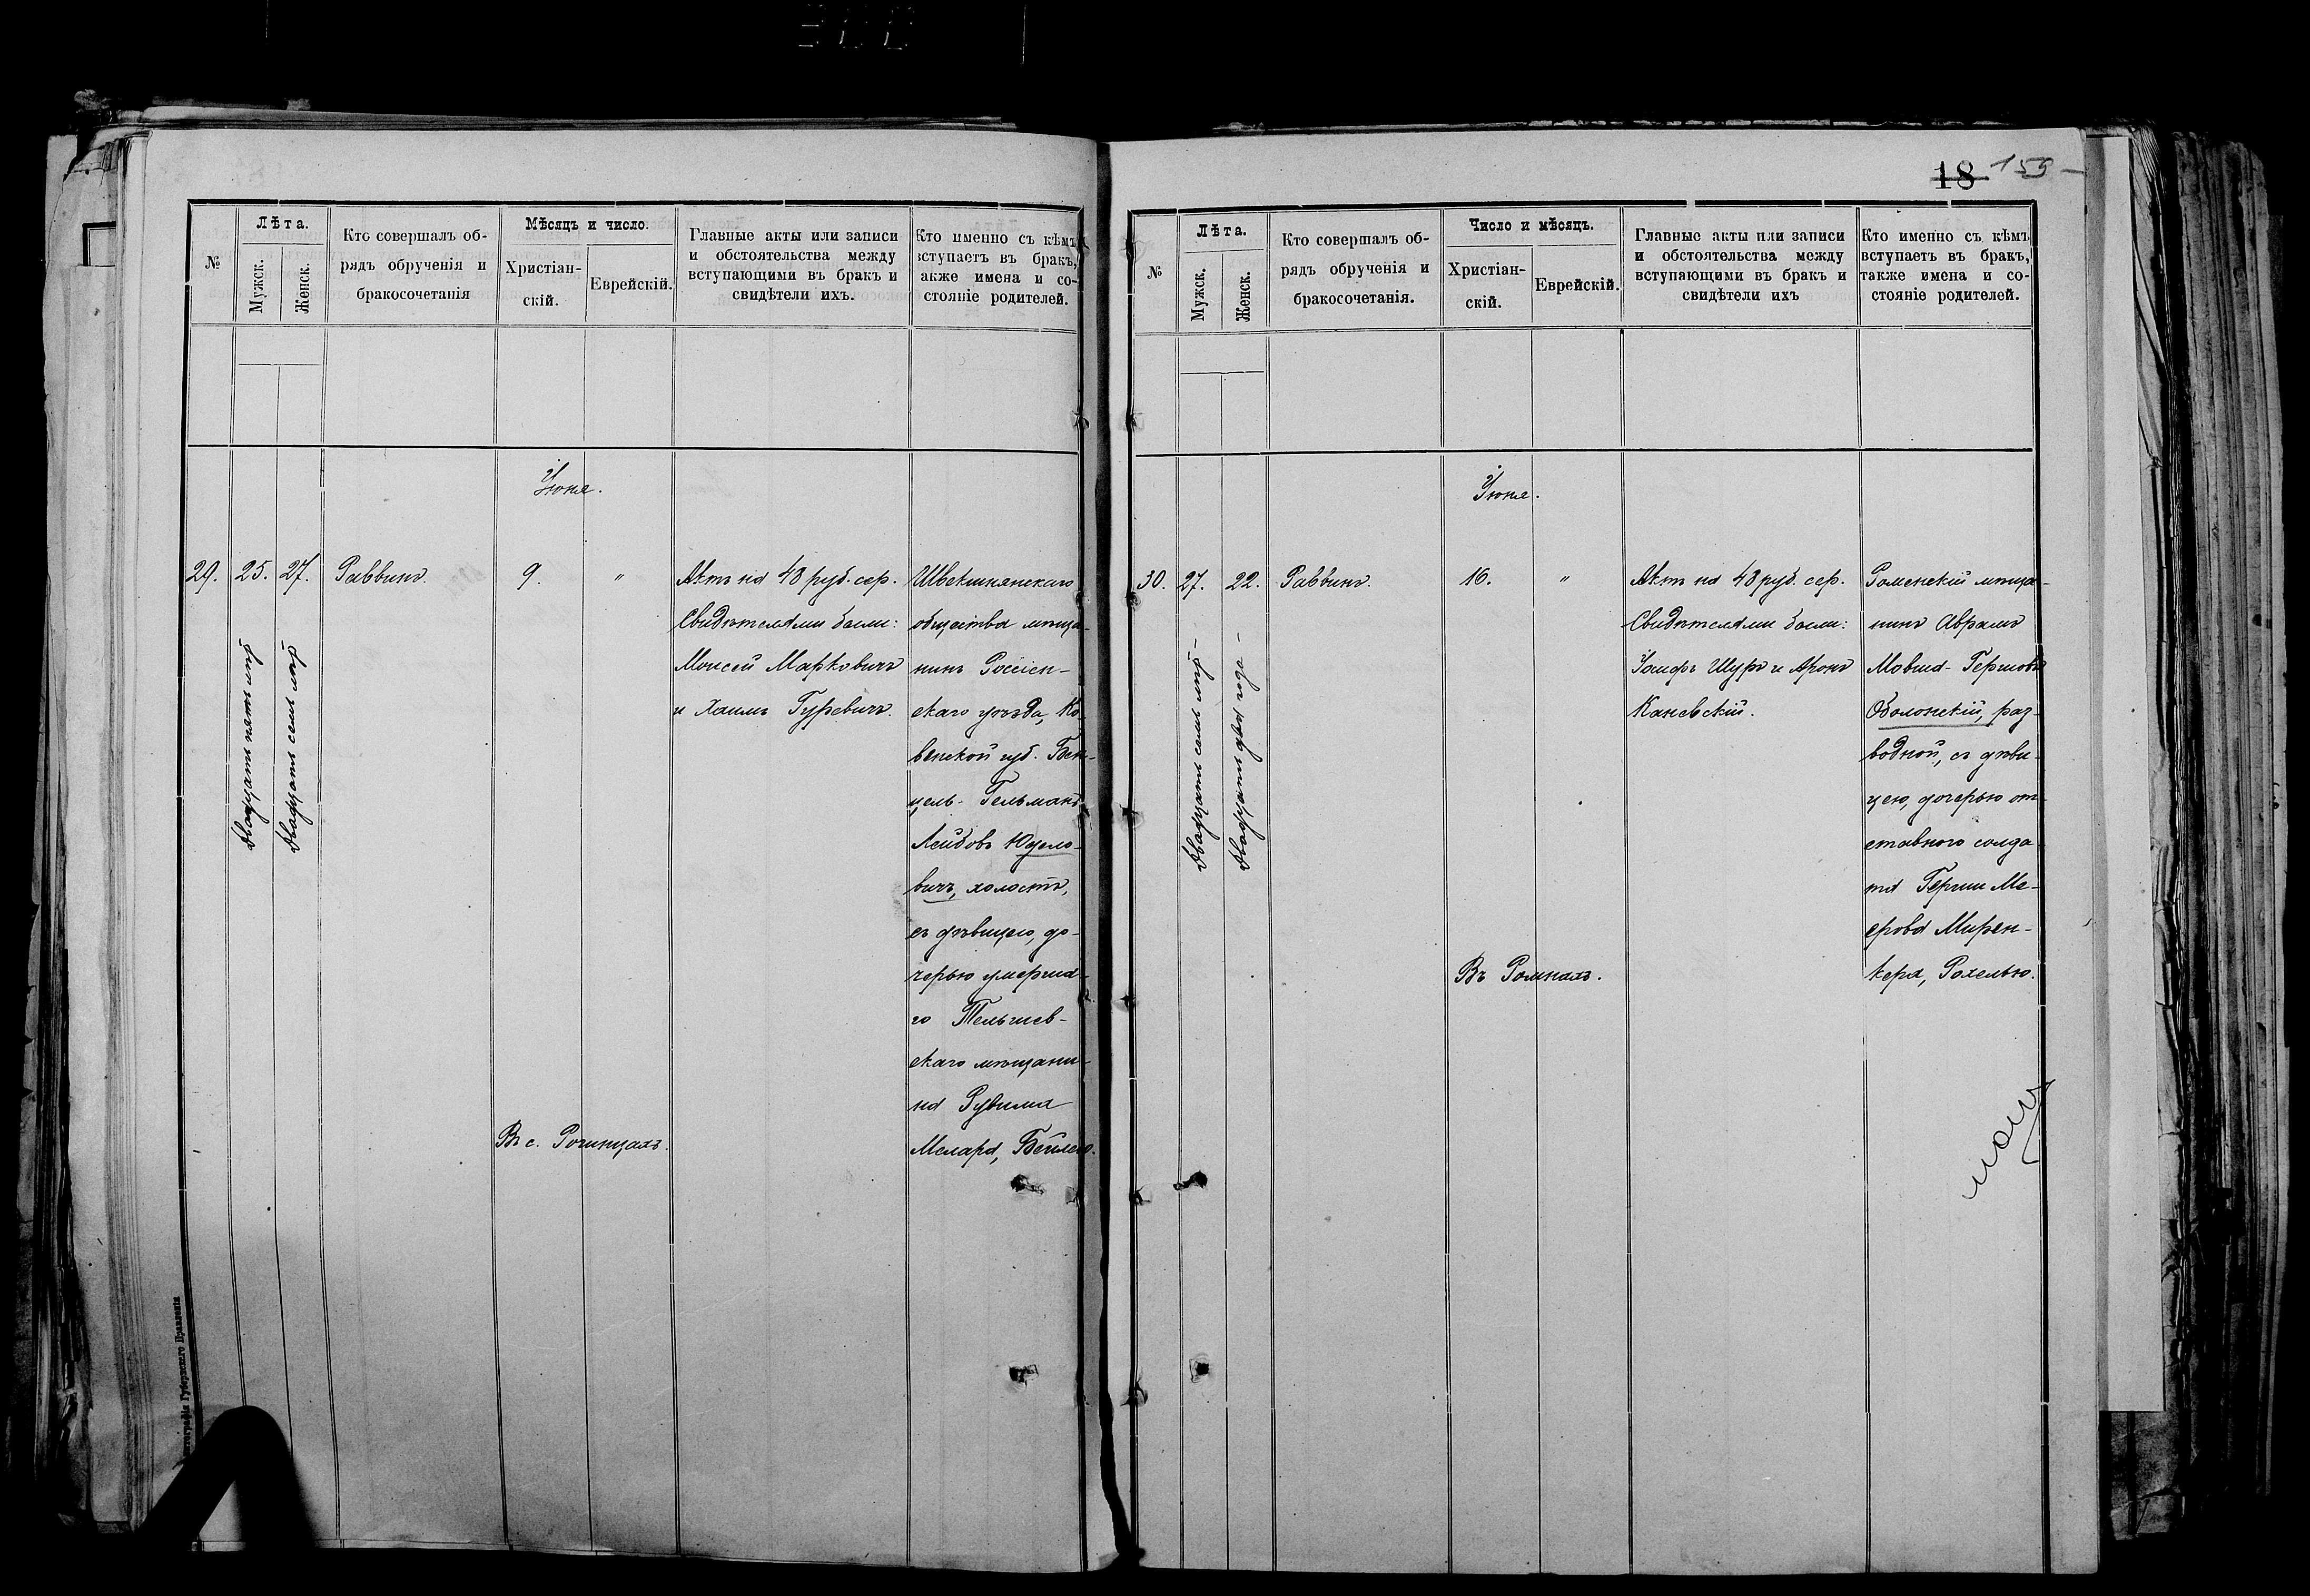 №
Лѣта.
Мужск.
Женск.
Кто совершалъ об-
рядъ обрученія и
бракосочетанія
Мѣсяцъ и число.
Христіан-
скій.
Еврейскій.
Главные акты или записи
и обстоятельства между
вступающими въ бракъ и
свидѣтели ихъ.
Кто именно съ кѣмъ
вступаетъ въ бракъ,
акже имена и со-
стояніе родителей.
Іюня.
29.
25.
Двадцать пять лѣтъ
27.
Двадцать семь лѣтъ
Раввинъ.
9.
"
Въ с. Рогинцахъ.
Актъ на 48 руб. сер.
Свидѣтелями были:
Моисей Марковичъ
и Хаимъ Гуревичъ.
Швекшнянскаго
общества мѣща-
нинъ Россіен-
скаго уѣзда, Ко-
венской губ. Бен-
цель-Гельманъ
Лейбовъ Юдело-
вичъ, холостъ,
съ дѣвицею, до-
черью умерша-
го Тельшев-
скаго мѣщани-
на Рувима
Меларя, Бейлею.
18 159
№
Лѣта.
Мужск.
Женск.
Кто совершалъ об-
рядъ обрученія и
бракосочетанія.
Число и мѣсяцъ.
Христіан-
скій.
Еврейскій.
Главные акты или записи
и обстоятельства между
вступающими въ бракъ и
свидѣтели ихъ
Кто именно съ кѣмъ
вступаетъ въ бракъ,
также имена и со-
стояніе родителей.
Іюня.
30.
27.
Двадцать семь лѣтъ
22.
Двадцать два года
Раввинъ.
16.
"
Въ Ромнахъ.
Актъ на 48 руб. сер.
Свидѣтелями были:
Іосифъ Шуръ и Аронъ
Каневскій.
Роменскій мѣща-
нинъ Аврамъ
Мовша-Гершовъ
Оболонскій, раз-
водной, съ дѣви-
цею, дочерью от-
ставного солда-
та Герши Ме-
ерова Мирен-
кера, Рохелью.